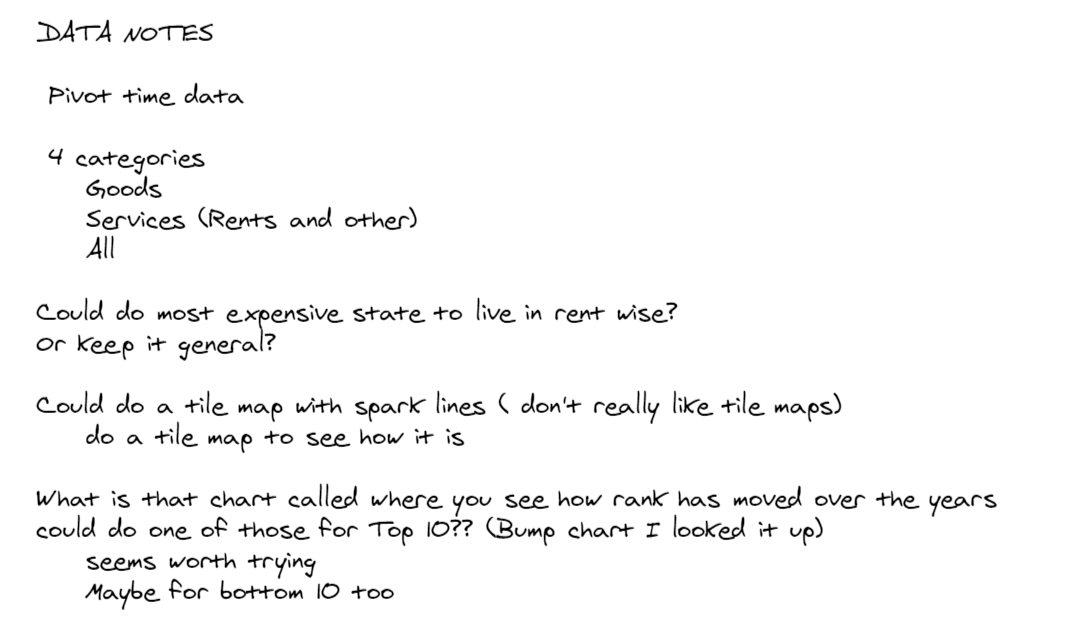 DATA NOTES
Pivot time data
4 categories
Goods
Services (Rents and other)
All
Could do most expensive state to live in rent wise?
or keep it general?
Could do a tile map with spark lines ( don't really like tile maps)
do a tile map to see how it is
What is that chart called where you see how rank has moved over the years
could do one of those for Top 10?? (Bump chart I looked it up)
seems worth trying
Maybe for bottom 10 too